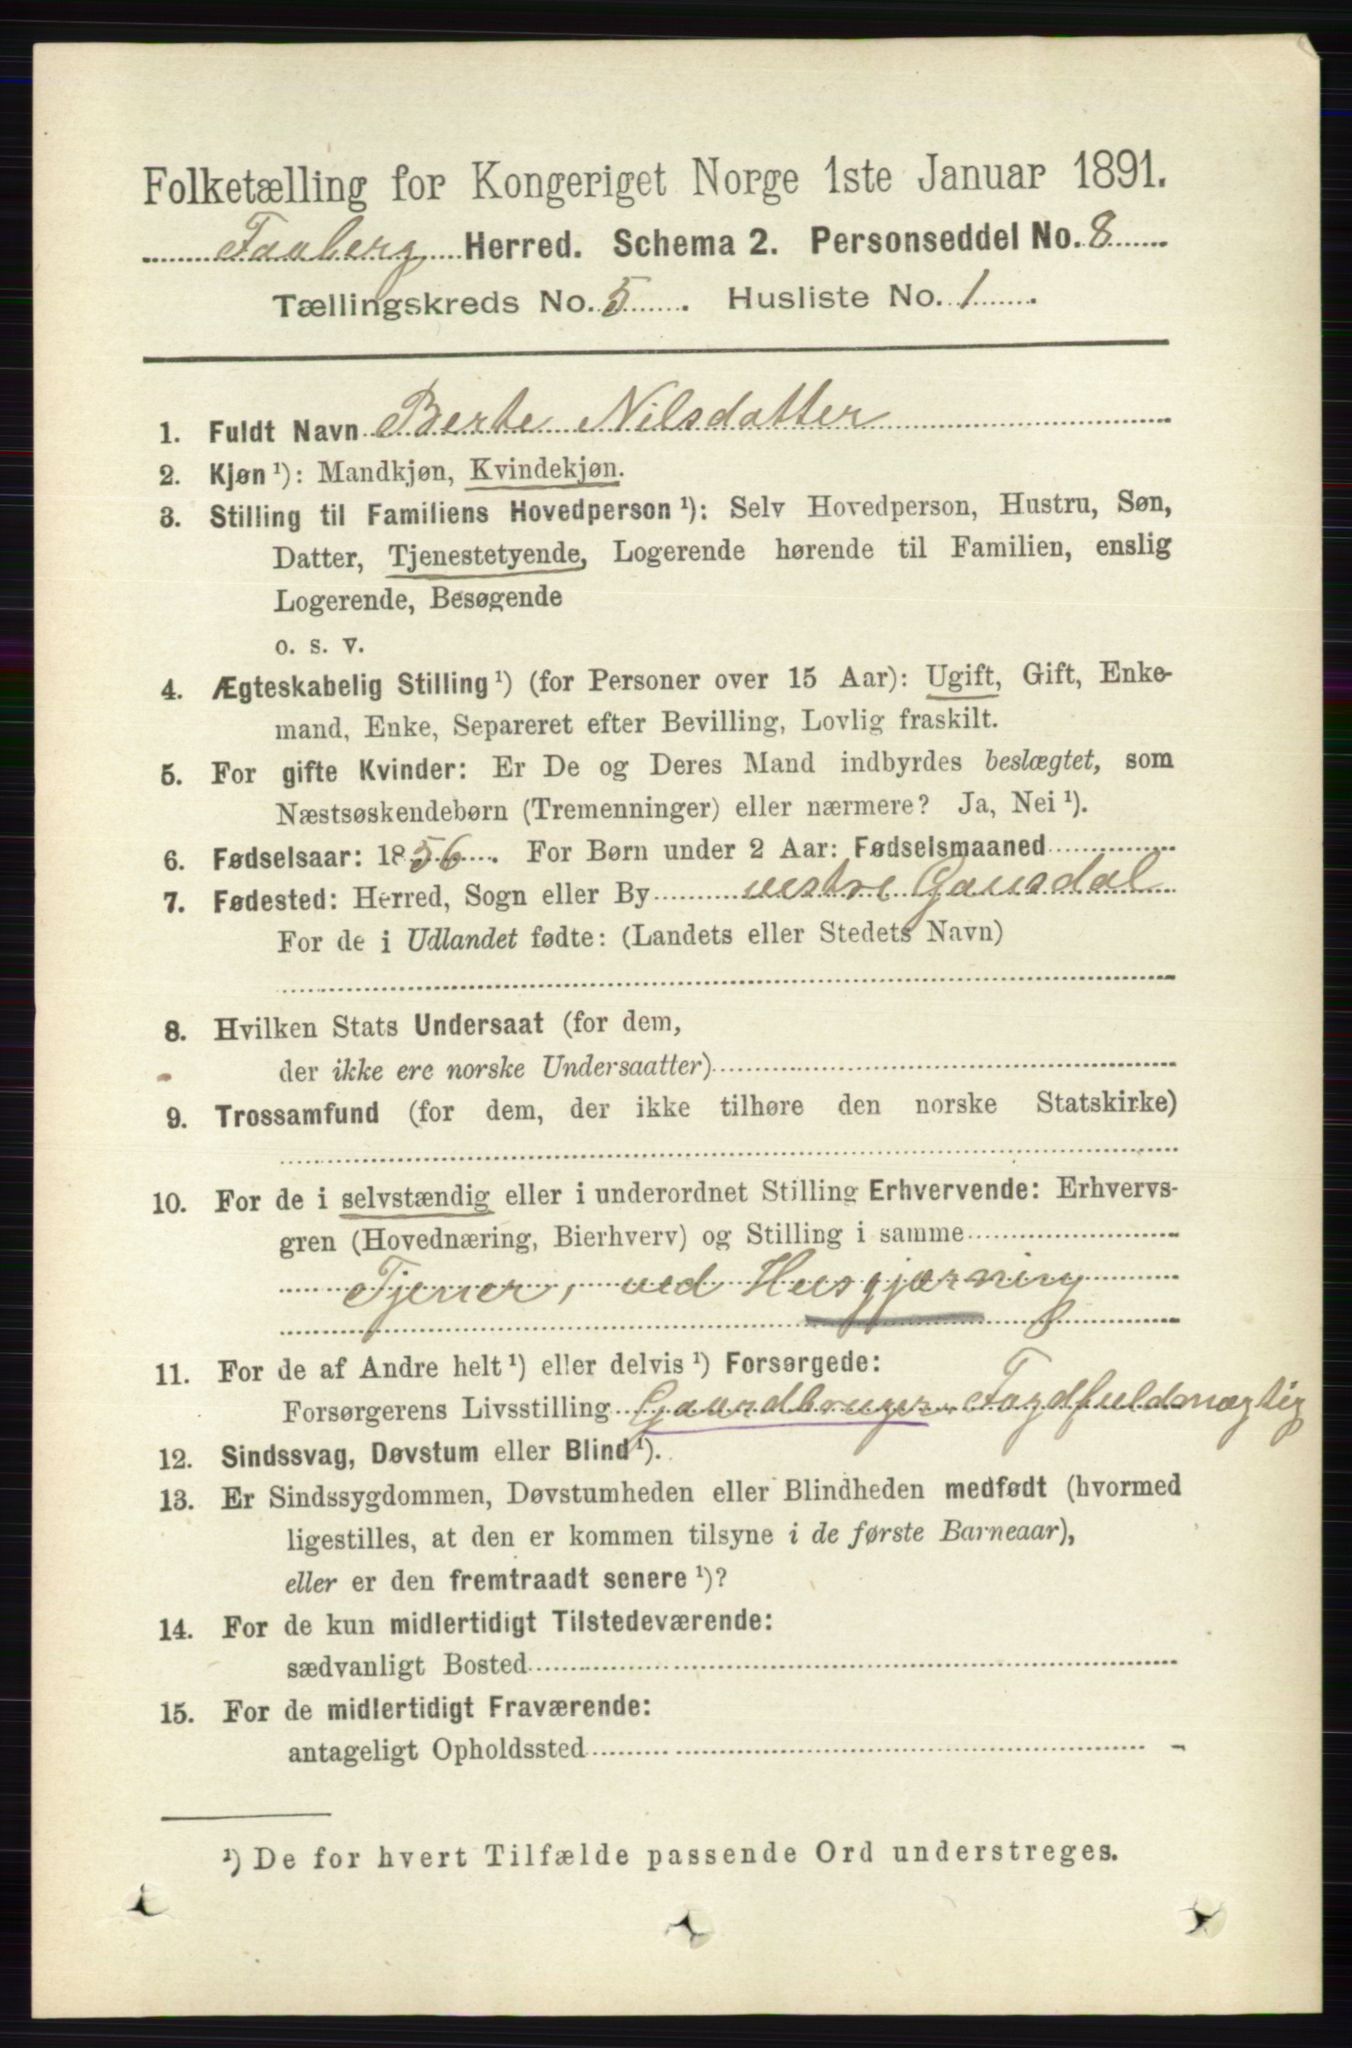 Folketælling for Kongeriget Norge 1ste Januar 1891.
Faaberg Herred. Schema 2. Personseddel No. 8
Tællingskreds No. 5. Husliste No. 1.
1. Fuldt Navn Berte Nilsdatter
2. Kjøn ¹): Mandkjøn, Kvindekjøn.
3. Stilling til Familiens Hovedperson ¹): Selv Hovedperson, Hustru, Søn,
Datter, Tjenestetyende, Logerende hørende til Familien, enslig
Logerende, Besøgende
o. s. v.
4. Ægteskabelig Stilling ¹) (for Personer over 15 Aar): Ugift, Gift, Enke-
mand, Enke, Separeret efter Bevilling, Lovlig fraskilt.
5. For gifte Kvinder: Er De og Deres Mand indbyrdes beslægtet, som
Næstsøskendebørn (Tremenninger) eller nærmere? Ja, Nei ¹).
6. Fødselsaar: 1856. For Børn under 2 Aar: Fødselsmaaned
7. Fødested: Herred, Sogn eller By vestre Gausdal
For de i Udlandet fødte: (Landets eller Stedets Navn)
8. Hvilken Stats Undersaat (for dem,
der ikke ere norske Undersaatter)
9. Trossamfund (for dem, der ikke tilhøre den norske Statskirke)
10. For de i selvstændig eller i underordnet Stilling Erhvervende: Erhvervs-
gren (Hovednæring, Bierhverv) og Stilling i samme
Tjener, ved Husgjærning
11. For de af Andre helt ¹) eller delvis ¹) Forsørgede:
Forsørgerens Livsstilling Gaardbruger. Fogdfuldmægtig
12. Sindssvag, Døvstum eller Blind ¹).
13. Er Sindssygdommen, Døvstumheden eller Blindheden medfødt (hvormed
ligestilles, at den er kommen tilsyne i de første Barneaar),
eller er den fremtraadt senere ¹)?
14. For de kun midlertidigt Tilstedeværende:
sædvanligt Bosted
15. For de midlertidigt Fraværende:
antageligt Opholdssted
¹) De for hvert Tilfælde passende Ord understreges.